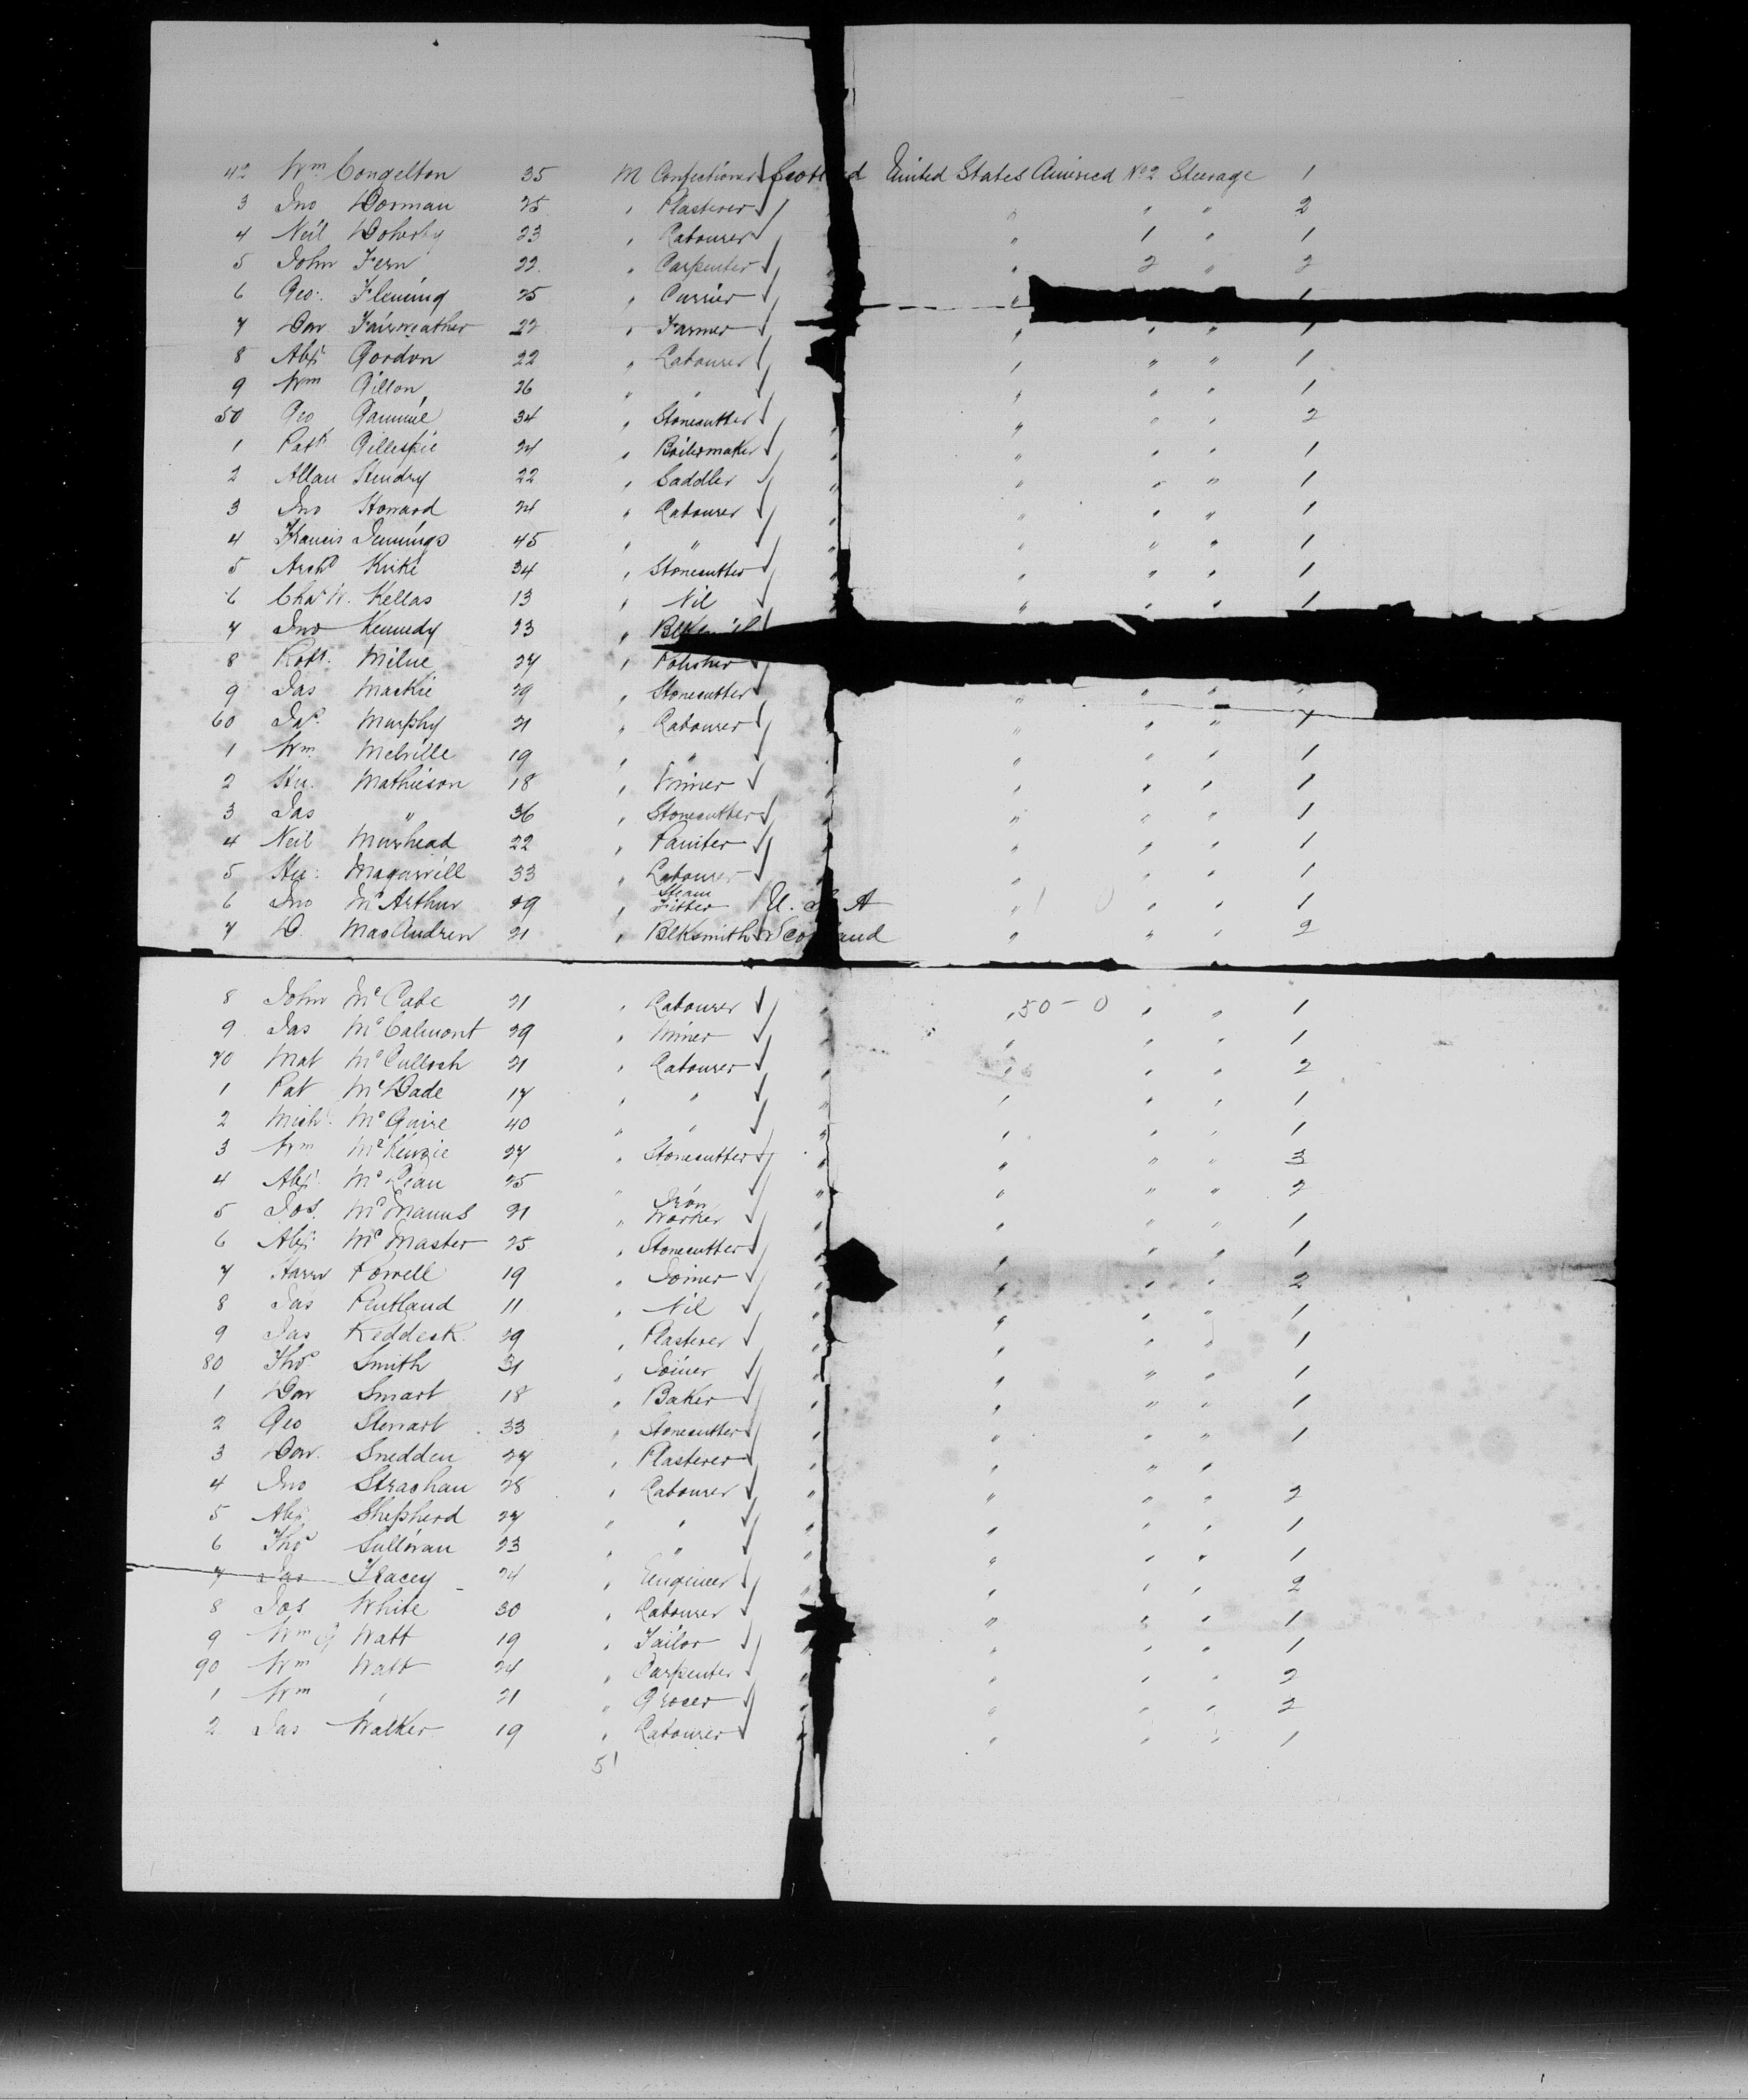 42 Wm Congelton 35 M Confectioner Scotland United States America No 2 Steerage 1
3 Jno Dorman 25 " Plasterer " " " 2
4 Neil Doherty 23 " Labourer " 1 " 1
5 John Fern 22 " Carpenter " " 2 " 2
6 Geo. Fleming 25 " Currier " 1
7 Dav Fairweather 22 " Farmer " " " 1
8 Alexr Gordon 22 " Labourer " " " 1
9 Wm Gillon 26 " " " " " 1
50 Geo Gammie 34 " Stonecutter " " " " 2
1 Patk Gillespie 24 " Boilermaker " " " " 1
2 Allan Hendry 22 " Saddler " " " " 1
3 Jno Howard 24 " Labourer " " " " 1
4 Francis Jennings 45 " " " " " " 1
5 Archd Kirke 34 " Stonecutter " " " " 1
6 Chas W. Kellas 13 " Nil " " " " 1
7 Jno Kennedy 23 "
8 Robt. Milne 27 " Polisher
9 Jas Mackie 29 " Stonecutter " " "
60 Jas. Murphy 21 " Labourer " " " " 1
1 Wm Melville 19 " " " " " " 1
2 Hu. Mathieson 18 " Miner " " " " 1
3 Jas " 36 " Stonecutter " " " " 1
4 Neil Muirhead 22 " Painter " " " " 1
5 Hu. 33 " Labourer " " " " 1
6 Jno McArthur 29 " Steam Fitter U. S. A " " " 1
7 D. MacAndrew 21 " Blksmith Scotland " " " 2
8 John McCabe 21 " Labourer " " 50-0 " " 1
9 Jas McCalmont 29 " Miner " " " " 1
70 Mat McCulloch 21 " Labourer " " " " 2
1 Pat McDade 17 " " " " " " 1
2 Mich. McGuire 40 " " " " " " 1
3 Wm McKenzie 27 " Stonecutter " " " " 3
4 Alexr McLean 25 " " " " " 2
5 Jos. McManus 21 " Iron Worker " " " " 1
6 Alexr McMaster 25 " Stonecutter " " " " 1
7 Powell 19 " Joiner " " " " 2
8 Jas Pentland 11 " Nil " " " " 1
9 Jas 29 " Plasterer " " " " 1
80 Thos Smith 31 " Joiner " " " " 1
1 Dav Smart 18 " Baker " " " " 1
2 Geo Stewart 33 " Stonecutter " " " " 1
3 Dav. Snedden 27 " Plasterer " " " "
4 Jno Strachan 28 " Labourer " " " " 2
5 Alexr Shepherd 27 " " " " " " 1
6 Thos Sullivan 23 " " " " " " 1
7 Jas Tracey 24 " Engineer " " " " 2
8 Jos White 30 " Labourer " " " 1
9 Wm G Watt 19 " Tailor " " " " 1
90 Wm Watt 24 " Carpenter " " " 2
1 Wm " 21 " Grocer " " " " 2
2 Jas Walker 19 " Labourer " " " " 1
51